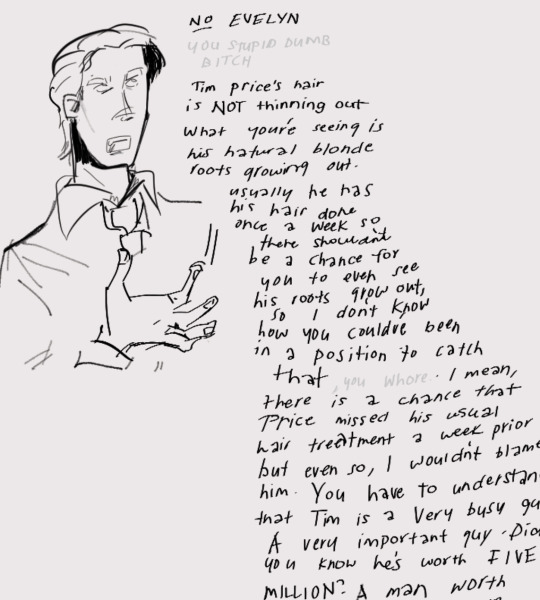 NO EVELYN
YOU STUPID DUMB
BITCH
Tim price's hair
is NOT thinning out
What you're seeing is
his natural blonde
roots growing out.
usually he has
his hair done
once a week so
there shouldn't
be a chance for
you to even see
his roots grow out,
so I dont know
how you could've been
in a position to catch
that, you whore. I mean,
there is a chance that
Price missed his usual
hair treatment a week prior
but even so, I wouldn't blame
him. You have to understan
that Tim is a very busy gu
A very important guy. Did
you know he's worth FIVE
MILLION? A man worth